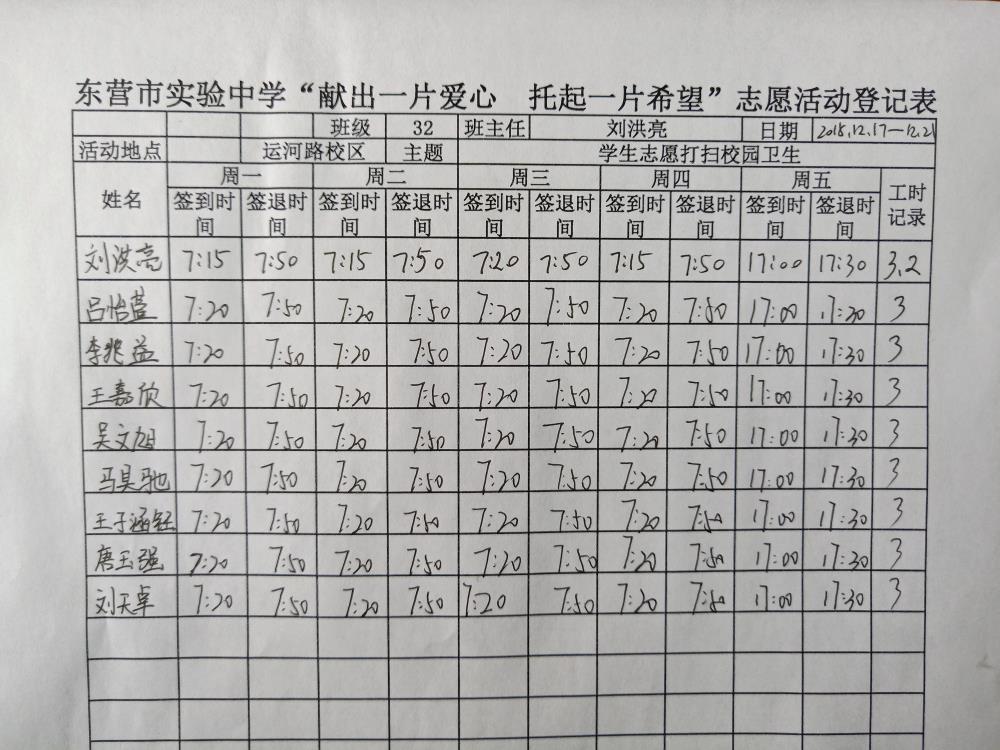 东营市实验中学“献出一片爱心 托起一片希望”志愿活动登记表
班级 32 班主任 刘洪亮 日期 2018.12.17—12.21
活动地点 运河路校区 主题 学生志愿打扫校园卫生
姓名 周一 周二 周三 周四 周五 工时记录
签到时间 签退时间 签到时间 签退时间 签到时间 签退时间 签到时间 签退时间 签到时间 签退时间
刘洪亮 7:15 7:50 7:15 7:50 7:20 7:50 7:15 7:50 17:00 17:30 3.2
吕怡萱 7:20 7:50 7:20 7:50 7:20 7:50 7:20 7:50 17:00 17:30 3
李兆益 7:20 7:50 7:20 7:50 7:20 7:50 7:20 7:50 17:00 17:30 3
王嘉欣 7:20 7:50 7:20 7:50 7:20 7:50 7:20 7:50 17:00 17:30 3
吴文旭 7:20 7:50 7:20 7:50 7:20 7:50 7:20 7:50 17:00 17:30 3
马昊驰 7:20 7:50 7:20 7:50 7:20 7:50 7:20 7:50 17:00 17:30 3
王子涵钰 7:20 7:50 7:20 7:50 7:20 7:50 7:20 7:50 17:00 17:30 3
唐玉强 7:20 7:50 7:20 7:50 7:20 7:50 7:20 7:50 17:00 17:30 3
刘天卓 7:20 7:50 7:20 7:50 7:20 7:50 7:20 7:50 17:00 17:30 3